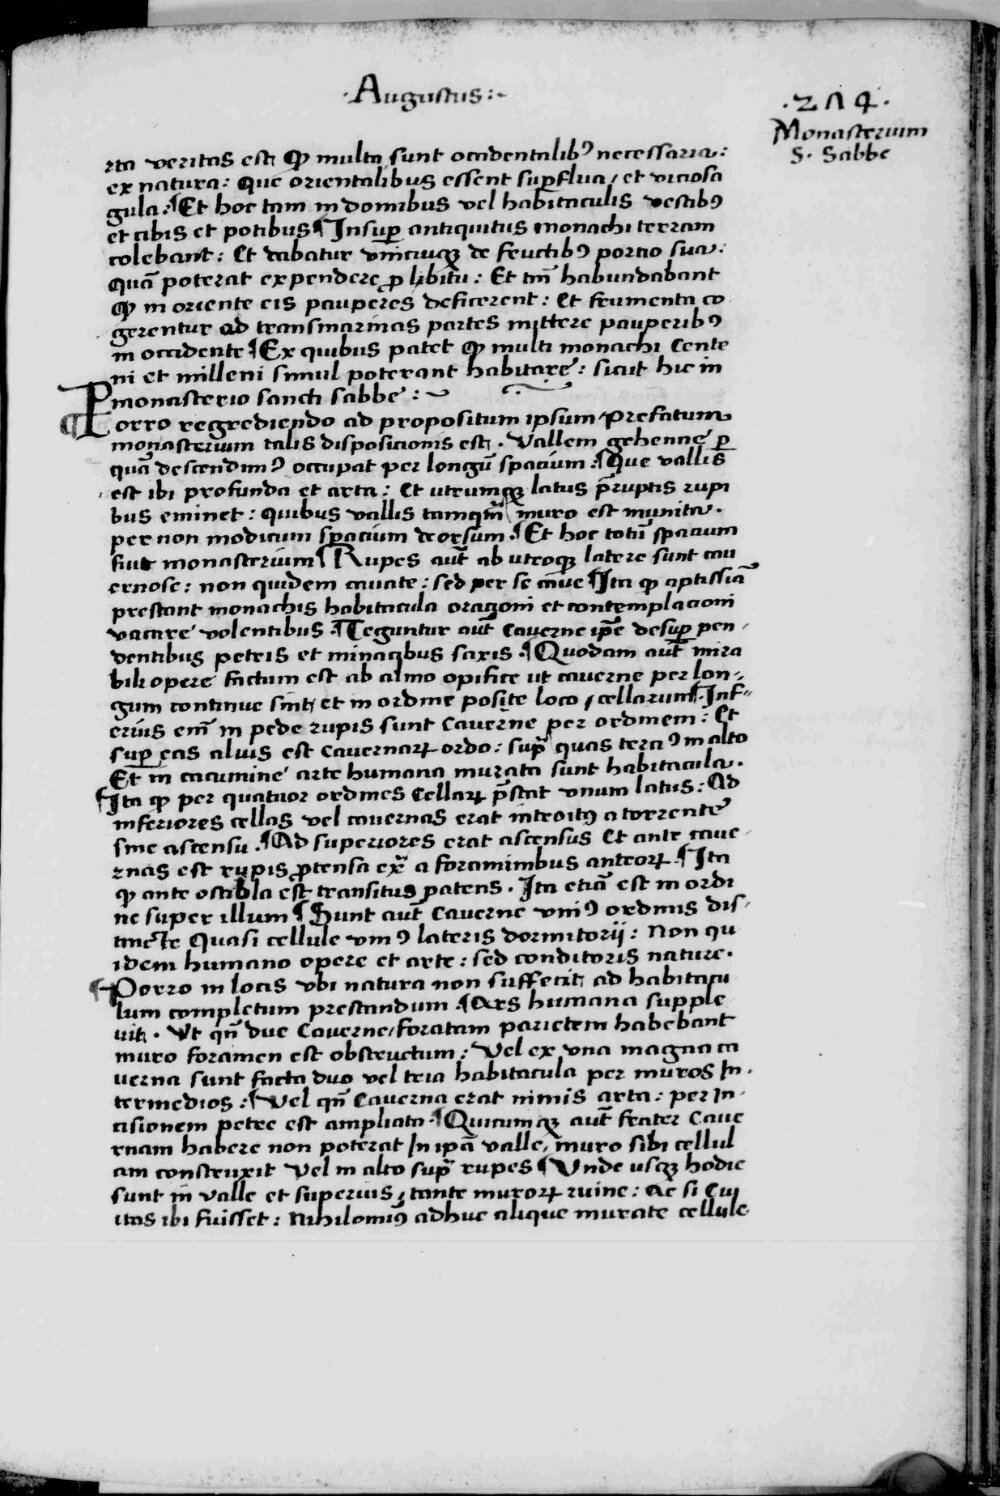 ·Augustus:~
·214·
Monasterium
S. Sabbe
rta veritas est; ꝙ multa sunt occidentalibꝰ necessaria:
ex natura: Que orientalibus essent suꝑflua / et viciosa
gula. ¶Et hoc tam in domibus vel habitaculis vestibꝰ
et cibis et potibus ¶Insuꝑ antiquitus monachi terram
colebant: Et dabatur vnicuiqꝫ de fructibꝰ portio sua:
Quā poterat expendere ꝓ libitu: Et tm̄ habundabant
ꝙ in oriente eis pauperes deficerent: Et frumenta co
gerentur ad transmarinas partes mittere pauperibꝰ
in occidente ¶Ex quibus patet ꝙ multi monachi Cente
ni et milleni simul poterant habitare: sicut hic in
monasterio sancti sabbe:~
Porro regrediendo ad propositum ipsum prefatum
monasterium talis dispositionis est;. Vallem gehenne ꝑ
quā descendimꝰ occupat per longū spacium: ¶Que vallis
est ibi profunda et arta: Et utrumqꝫ latus p̄ruptis rupi
bus eminet: quibus vallis tamqm̄ muro est munita.
per non modicum spacium deorsum. ¶Et hoc totū spacium
fuit monasterium ¶Rupes aut̄ ab utroqꝫ latere sunt cau
ernose: non quidem cauate: sed per se caue ¶Ita ꝙ aptissiā
prestant monachis habitacula oracioni et contemplacioni
vacare volentibus. ¶Teguntur aut̄ Cauerne ip̄e desuꝑ pen-
dentibus petris et minacibus saxis. ¶Quodam aut̄ mira
bili opere factum est ab almo opifice ut cauerne per lon-
gum continue sint; et in ordine posite loco / cellarum ¶.Inf-
erius em̄ in pede rupis sunt Cauerne per ordinem: Et
suꝑ eas alius est Cauernaꝝ ordo: sup̄ quas terciꝰ in alto
Et in cacumine arte humana murata sunt habitacula.
¶Ita ꝙ per quatuor ordines Cellaꝝ p̄stat vnum latus: Ad
inferiores cellas vel cauernas erat introitꝰ a torrente
sine ascensu. ¶Ad superiores erat ascensus Et ante caue-
rnas est rupis ꝓtensa ex̄ a foraminibus antroꝝ. ¶Ita
ꝙ ante ostiola est transitus patens. Ita etiā est in ordi
ne super illum ¶Sunt aut̄ Cauerne vniꝰ ordinis dis-
tincte Quasi cellule vniꝰ lateris dormitorij: Non qu
idem humano opere et arte: sed conditoris nature.
Porro in locis vbi natura non suffecit; ad habitacu
lum completum prestandum ¶Ars humana supple
uit;. Vt qn̄ due Cauerne / foratam parietem habebant
muro foramen est obstructum: Vel ex vna magna ca
uerna sunt facta duo vel tria habitacula per muros In-
termedios: ¶Vel qn̄ Cauerna erat nimis arta: per In-
cisionem petre est ampliata. ¶Quicumqꝫ aut̄ frater Caue
rnam habere non poterat In ip̄a valle, muro sibi cellul
am construxit Vel in alto sup̄ rupes ¶Vnde usqꝫ hodie
sunt in valle et superius, tante muroꝝ ruine: Ac si Ciui
itas ibi fuisset: Nihilominꝰ adhuc alique murate cellule